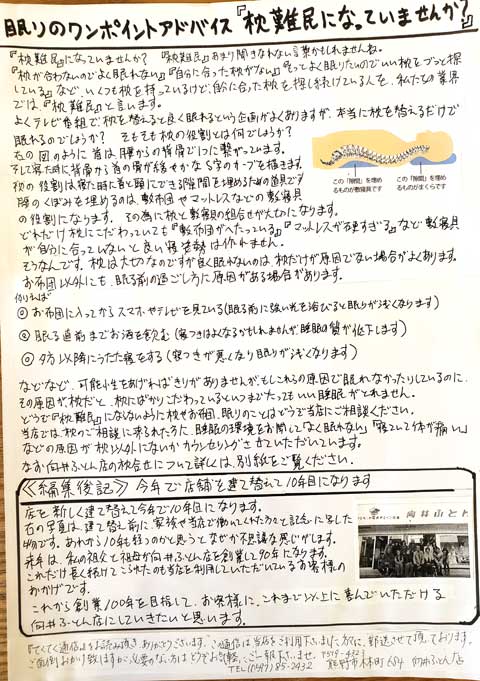 眠りのワンポイントアドバイス『枕難民になっていませんか?』
『枕難民』になっていませんか? 『枕難民』あまり聞きなれない言葉かもしれませんね。
『枕が合わないのでよく眠れない』『自分に合った枕がない』『もっとよく眠りたいのでいい枕をずっと探
している』など、いくつも枕を持っているけど、自分に合った枕を探し続けている人を、私たちの業界
では、『枕難民』と言います。
よくテレビ番組で枕を替えると良く眠れるという企画がよくありますが、本当に枕を替えるだけで
眠れるのでしょうか? そもそも枕の役割とは何でしょうか?
右の図のように首は腰からの背骨で1つに繋がっています。
そして寝た時に背骨から首の骨が緩やかなS字のカーブを描きます。
枕の役割は寝た時に首と頭にできる隙間を埋めるための道具です
腰のくぼみを埋めるのは敷布団やマットレスなどの敷寝具
の役割になります。その為に枕と敷寝具の組合せが大切になります。
どれだけ枕にこだわっていても『敷布団がへたっている』『マットレスが固すぎる』など敷寝具
が自分に合っていないと良い寝姿勢は作れません。
そうなんです。枕は大切なのですが良く眠れないのは枕だけが原因でない場合がよくあります。
お布団以外にも、眠る前の過ごし方に原因がある場合があります。
この「隙間」を埋め
るものが敷寝具です
この「隙間」を埋め
るものがまくらです
例えば
◎お布団に入ってからスマホやテレビを見ている(眠る前に強い光を浴びると眠りが浅くなります)
◎眠る直前までお酒を飲む(寝つきはよくなるかもしれませんが睡眠の質が低下します)
◎夕方以降にうたた寝をする(寝つきが悪くなり眠りが浅くなります)
などなど、可能性をあげればきりがありませんが、もしこれらの原因で眠れなかったりしているのに、
その原因が枕だと、枕にばかりこだわっているといつまで大ってもいい睡眠がとれません。
どうぞ『枕難民』にならないように枕やお布団、眠りのことはどうぞ当店にご相談ください。
当店では、枕のご相談に来られた方に、睡眠の環境をお聞きして「よく眠れない」「寝ていて体が痛い」
などの原因が枕以外にないかカウンセリングさせていただいています。
なお向井ふとん店の枕合せについて詳しくは、別紙をご覧ください。
≪編集後記≫ 今年で店舗を建て替えて10年目になります
店を新しく建て替えて今年で10年目になります。
右の写真は、建て替え前に家族や当店で働いてくれた方々と記念に写した
ものです。あれから10年経つのかと思うとなぜか不思議な感じがします。
来年は、私の祖父と祖母が向井ふとん店を創業して90年になります。
これだけ長く続けてこられたのも当店を利用していただいているお客様の
おかげです。
これから創業100年を目指して、お客様に、これまで以上に喜んでいただける
向井ふとん店にしていきたいと思います。
てくてく通信をお読み頂き、ありがとうございます。この通信は当店をご利用下さいました方に、郵送させて頂いております。
ご面倒おかけ致しますが、必要のない方はどうぞお気軽にご一報下さいませ。
熊野市木本町684 向井ふとん店
TEL(0597)85-2432